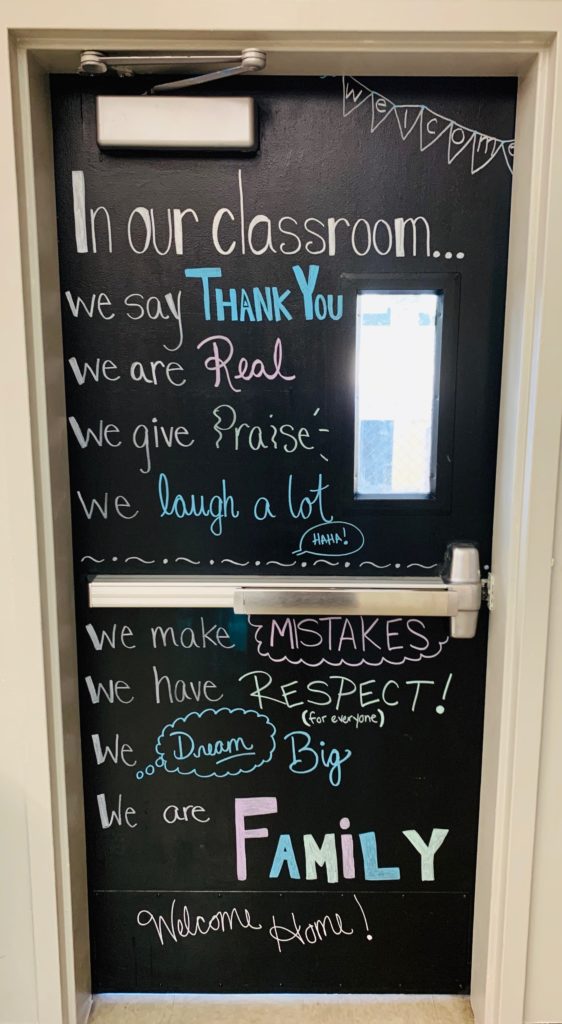 welcome
In our classroom...
we say THANK YOU
We are Real
We give Praise
We laugh a lot
HAHA!
We make MISTAKES
We have RESPECT!
(for everyone)
We Dream Big
We are FAMiLY
Welcome Home!